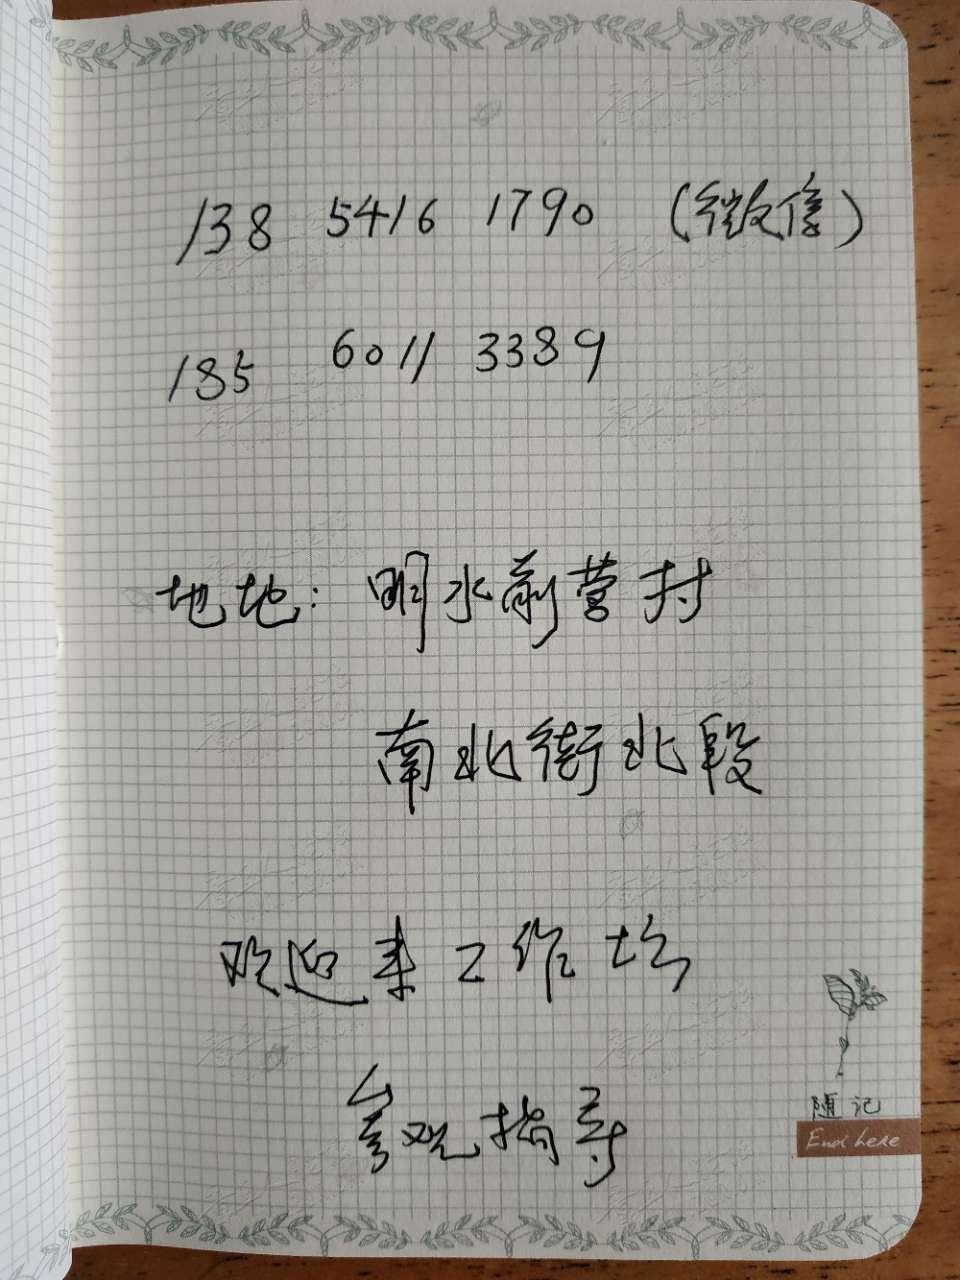 138 5416 1790 (微信)
185 6011 3389
地地: 明水前营村
南北街北段
欢迎来工作坊
参观指导
随记
End here